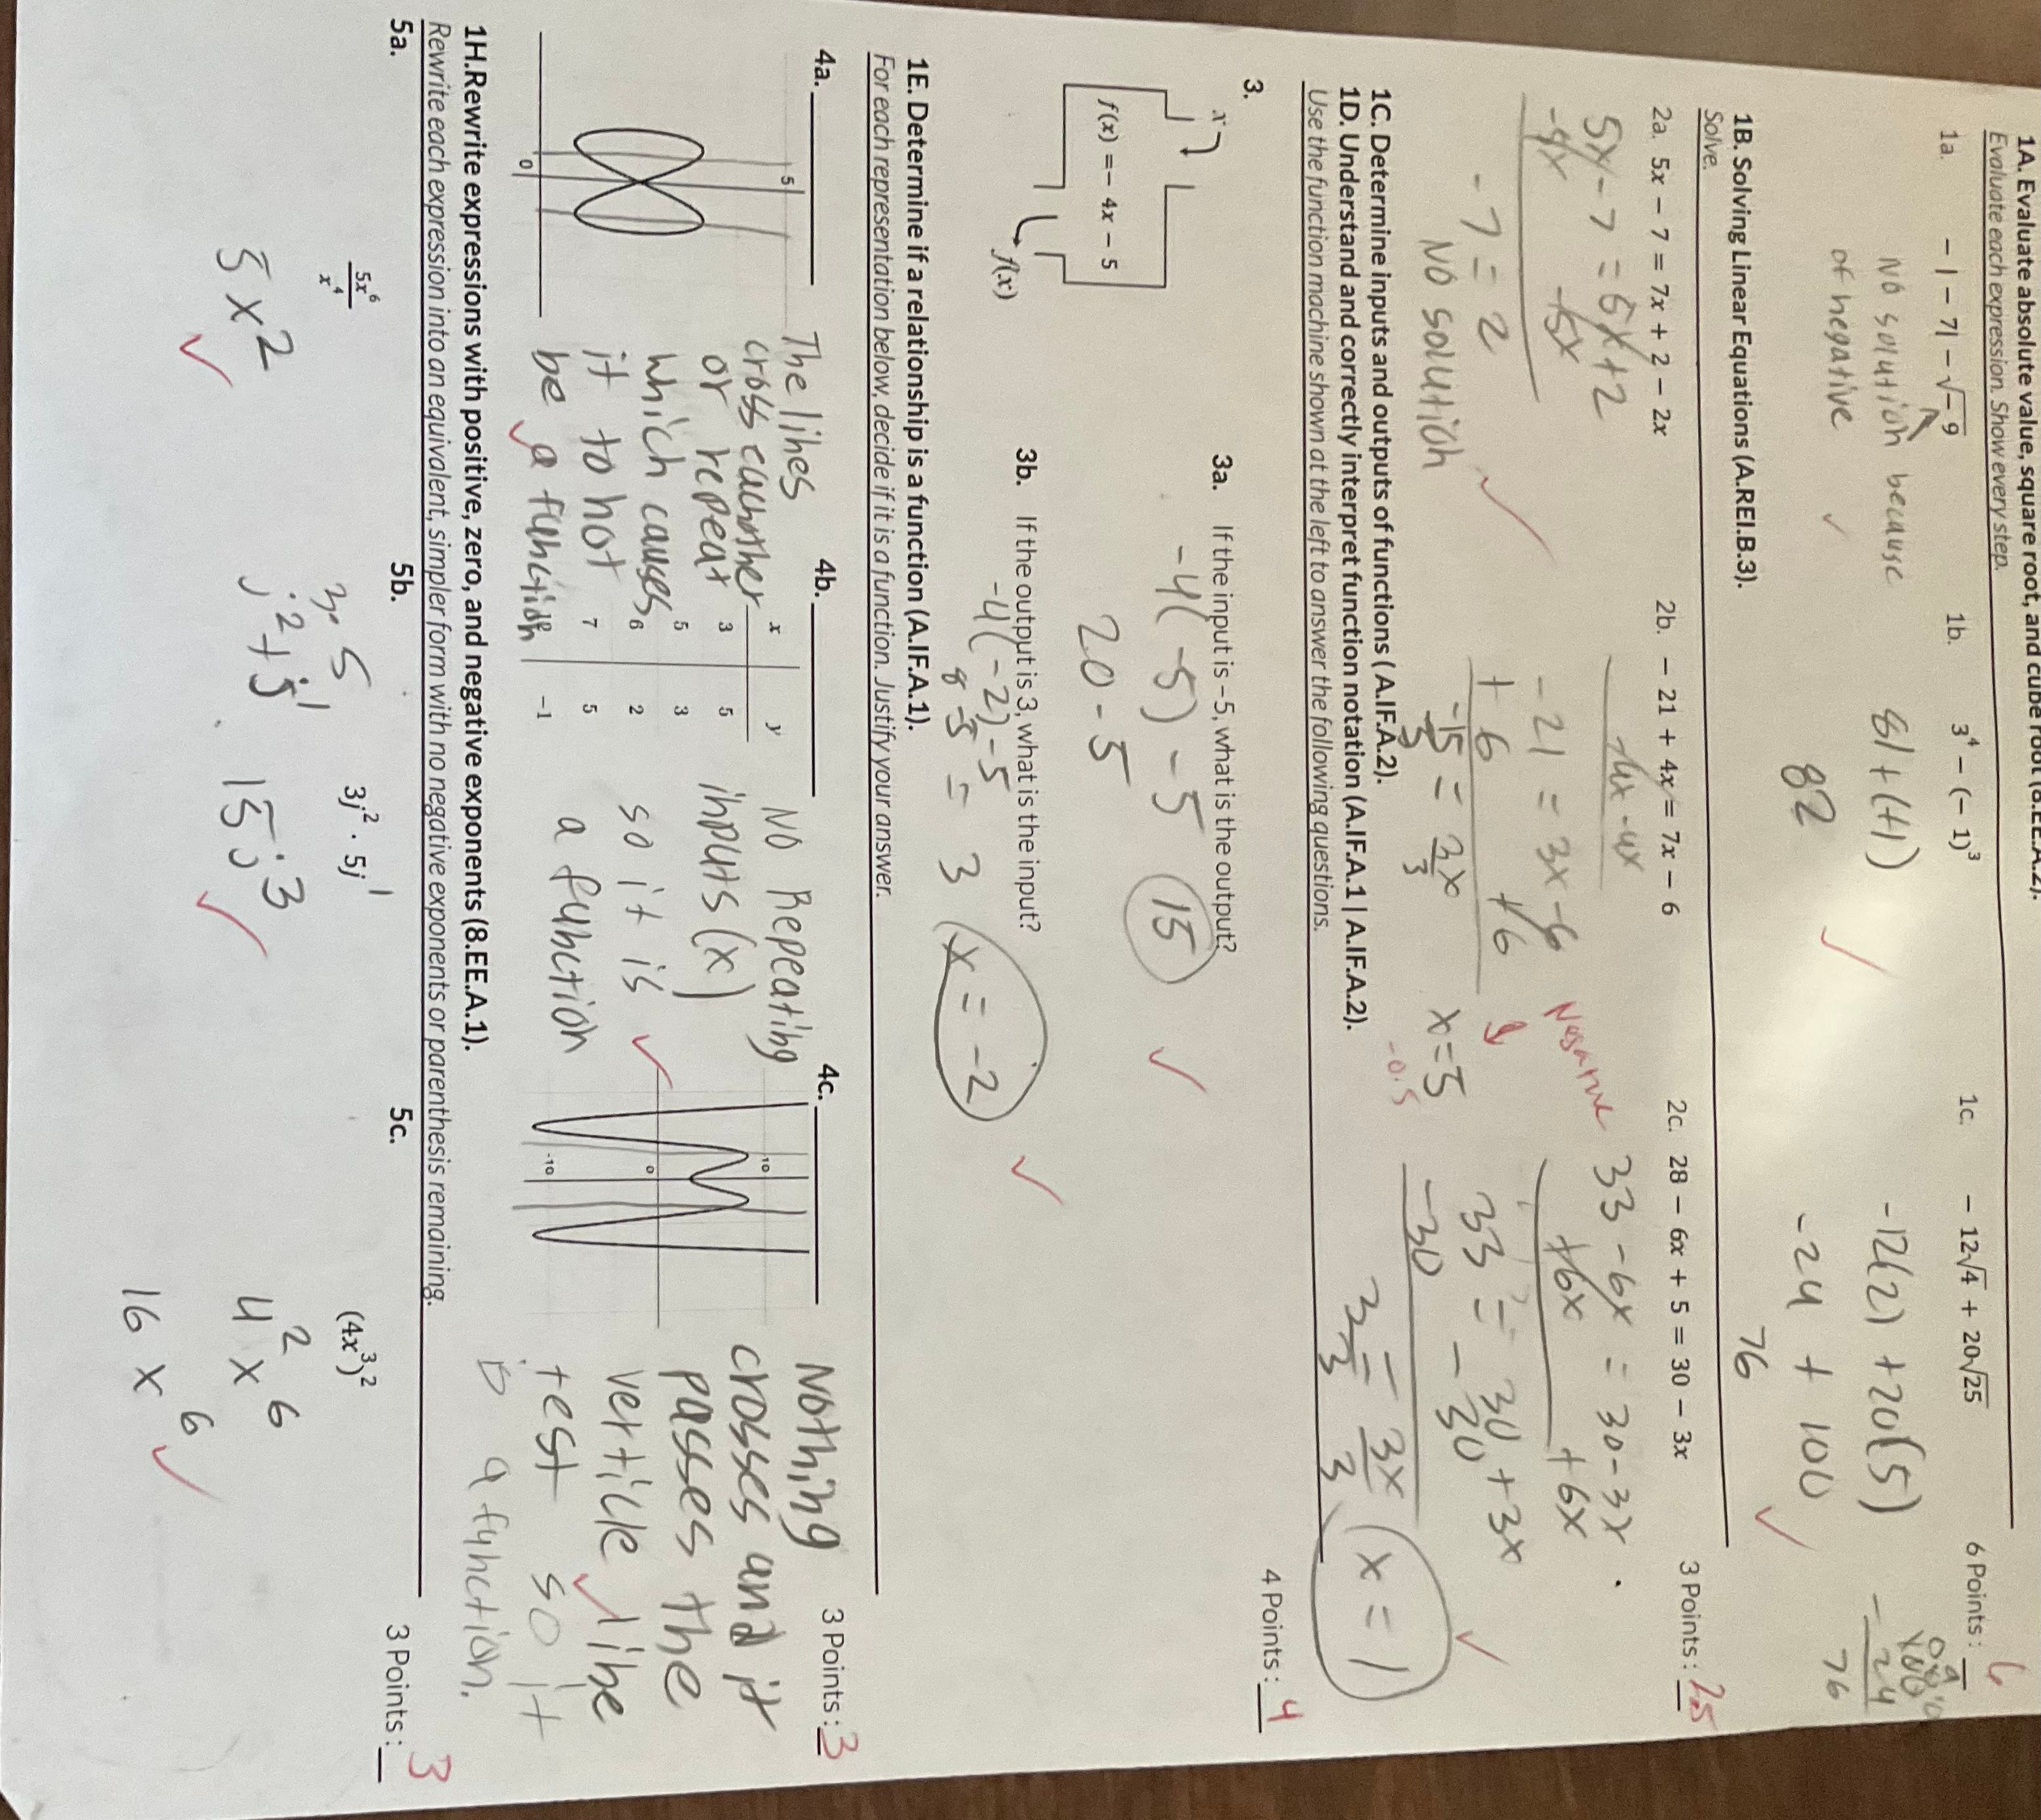 1A. Evaluate absolute value, square root, and cube root (8.EE.A.2).
Evaluate each expression. Show every step.
6 Points: 6
1a. - | - 7| - √-9
1b. 3^4 - (- 1)^3
1c. - 12√4 + 20√25
No solution because
of negative
81 + (+1)
82
-12(2) + 20(5)
-24 + 100
76
- 24
76
1B. Solving Linear Equations (A.REI.B.3).
Solve.
3 Points: 2.5
2a. 5x - 7 = 7x + 2 - 2x
2b. - 21 + 4x = 7x - 6
2c. 28 - 6x + 5 = 30 - 3x
5x - 7 = 5x + 2
-5x -5x
-7 = 2
No solution
-4x -4x
-21 = 3x - 6
+ 6 +6
-15 = 3x
3 3
x=5
Negative
-0.5
33 - 6x = 30 - 3x
+6x +6x
33 = 30 + 3x
-30 -30
3 = 3x
3 3
x = 1
1C. Determine inputs and outputs of functions ( A.IF.A.2).
1D. Understand and correctly interpret function notation (A.IF.A.1 | A.IF.A.2).
Use the function machine shown at the left to answer the following questions.
4 Points: 4
3.
x
f(x) = - 4x - 5
f(x)
3a. If the input is -5, what is the output?
-4(-5) - 5
20 - 5
15
3b. If the output is 3, what is the input?
-4(-2) - 5
8 - 5 = 3
x = -2
1E. Determine if a relationship is a function (A.IF.A.1).
For each representation below, decide if it is a function. Justify your answer.
3 Points: 3
4a.
5
0
The lines
cross eachother
or repeat
which causes
it to not
be a function
4b.
x y
3 5
5 3
6 2
7 5
-1
No Repeating
inputs (x)
so it is
a function
4c.
10
0
-10
Nothing
crosses and it
passes the
verticle line
test so it
a function.
1H.Rewrite expressions with positive, zero, and negative exponents (8.EE.A.1).
Rewrite each expression into an equivalent, simpler form with no negative exponents or parenthesis remaining.
3 Points: 3
5a. 5x^6/x^4
5x^2
5b. 3j^2 · 5j^1
3·5
j^2+j^1
15j^3
5c. (4x^3)^2
4^2 x^6
16 x^6